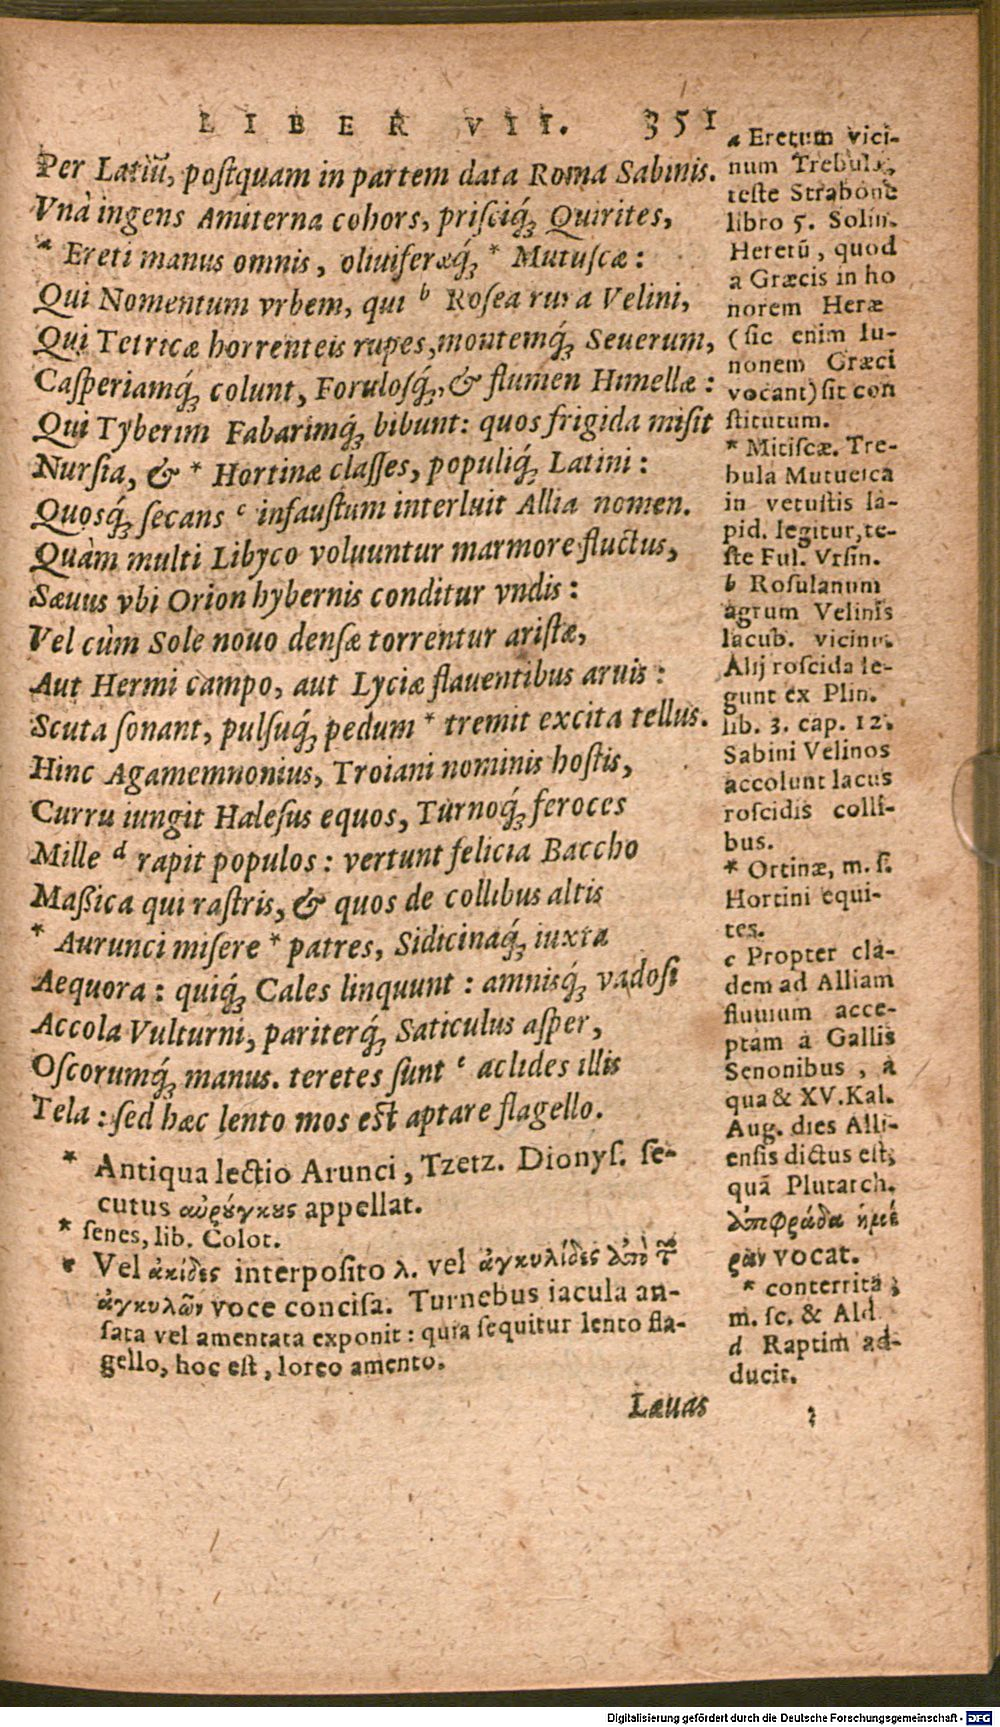 LIBER VII. 351
Per Latiũ, postquam in partem data Roma Sabinis.
Vnà ingens Amiterna cohors, prisciq́; Quirites,
* Ereti manus omnis, oliuiferæq́; * Mutuscæ:
Qui Nomentum vrbem, qui b Rosea rura Velini,
Qui Tetricæ horrenteis rupes, montemq́; Seuerum,
Casperiamq́; colunt, Forulosq́;, & flumen Himellæ:
Qui Tyberim Fabarimq́; bibunt: quos frigida misit
Nursia, & * Hortinæ classes, populiq́; Latini:
Quosq́; secans c infaustum interluit Allia nomen.
Quàm multi Libyco voluuntur marmore fluctus,
Sæuus vbi Orion hybernis conditur vndis:
Vel cùm Sole nouo densæ torrentur aristæ,
Aut Hermi campo, aut Lyciæ flauentibus aruis:
Scuta sonant, pulsuq́; pedum * tremit excita tellus.
Hinc Agamemnonius, Troiani nominis hostis,
Curru iungit Halesus equos, Turnoq́; feroces
Mille d rapit populos: vertunt felicia Baccho
Massica qui rastris, & quos de collibus altis
* Aurunci misere * patres, Sidicinaq́; iuxta
Aequora: quiq́; Cales linquunt: amnisq́; vadosi
Accola Vulturni, pariterq́; Saticulus asper,
Oscorumq́; manus. teretes sunt e aclides illis
Tela: sed hæc lento mos est aptare flagello.
* Antiqua lectio Arunci, Tzetz. Dionys. se-
cutus αὐρούγκους appellat.
* senes, lib. Colot.
e Vel ἀκίδες interposito λ. vel ἀγκυλίδες ἀπὸ τῶν
ἀγκυλῶν voce concisa. Turnebus iacula an-
sata vel amentata exponit: quia sequitur lento fla-
gello, hoc est, loreo amento.
Læuas
a Eretum vici-
num Trebulæ,
teste Strabone
libro 5. Solin.
Heretũ, quod
a Græcis in ho
norem Heræ
(sic enim Iu-
nonem Græci
vocant) sit con
stitutum.
* Mitiscæ. Tre-
bula Mutuesca
in vetustis la-
pid. legitur, te-
ste Ful. Vrsin.
b Rosulanum
agrum Velinis
lacub. vicinum.
Alij roscida le-
gunt ex Plin.
lib. 3. cap. 12.
Sabini Velinos
accolunt lacus
roscidis colli-
bus.
* Ortinæ, m. s.
Hortini equi-
tes.
c Propter cla-
dem ad Alliam
fluuium acce-
ptam à Gallis
Senonibus, a
qua & XV. Kal.
Aug. dies Alli-
ensis dictus est,
quã Plutarch.
ἀπφράδα ἡμέ
ραν vocat.
* conterrita;
m. sc. & Ald
d Raptim ad-
ducit.
Digitalisierung gefördert durch die Deutsche Forschungsgemeinschaft - DFG